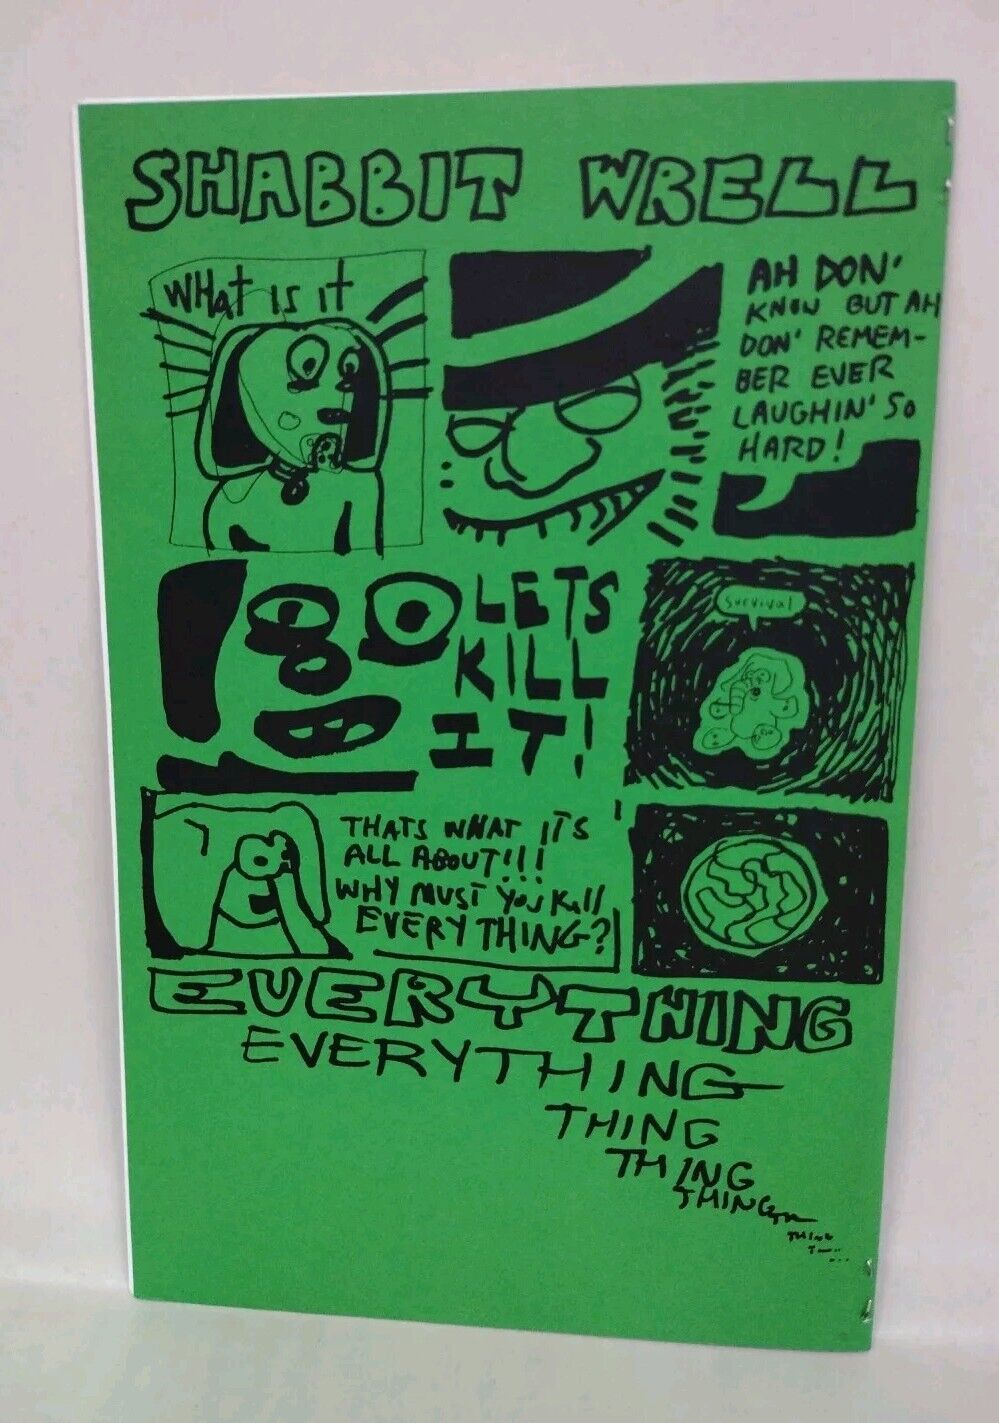 SHABBIT WRELL
WHat is it
AH DON'
KNOW BUT AH
DON' REMEM-
BER EVER
LAUGHIN' SO
HARD!
LETS
KILL
IT!
Survival
THATS WHAT ITS
ALL ABOUT!!!
WHY MUST YOU Kill
EVERY THING?
EVERYTHING
EVERYTHING
THING
THING
THING
THING